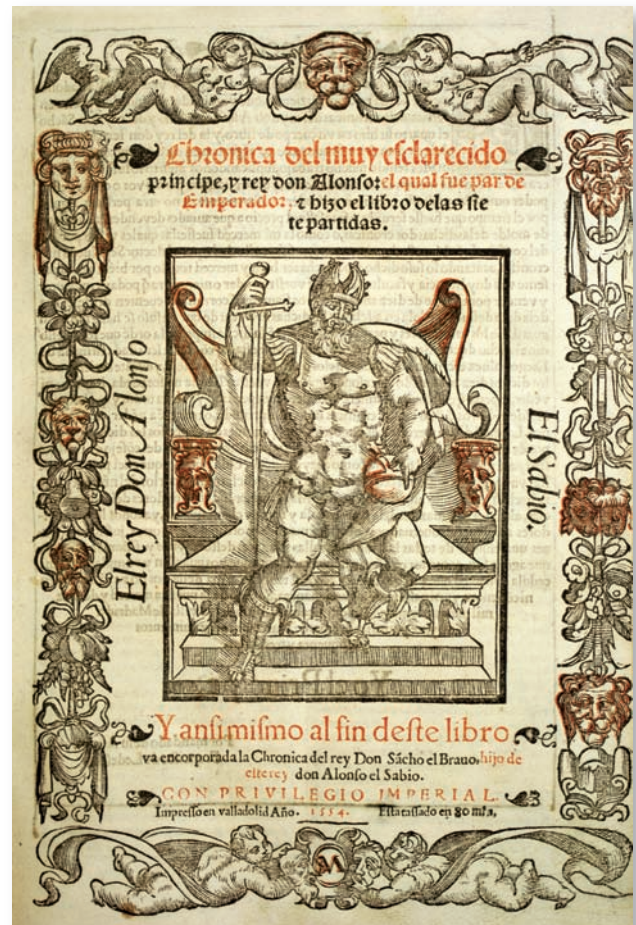 Chronica del muy esclarecido
principe, y rey don Alonso: el qual fue par de
Emperador, ⁊ hizo el libro delas sie
te partidas.
El rey Don Alonso
El Sabio.
Y ansimismo al fin deste libro
va encorporada la Chronica del rey Don Sãcho el Brauo, hijo de
este rey don Alonso el Sabio.
CON PRIVILEGIO IMPERIAL.
Impresso en valladolid Año. 1554. Esta tassado en 80 mrs,